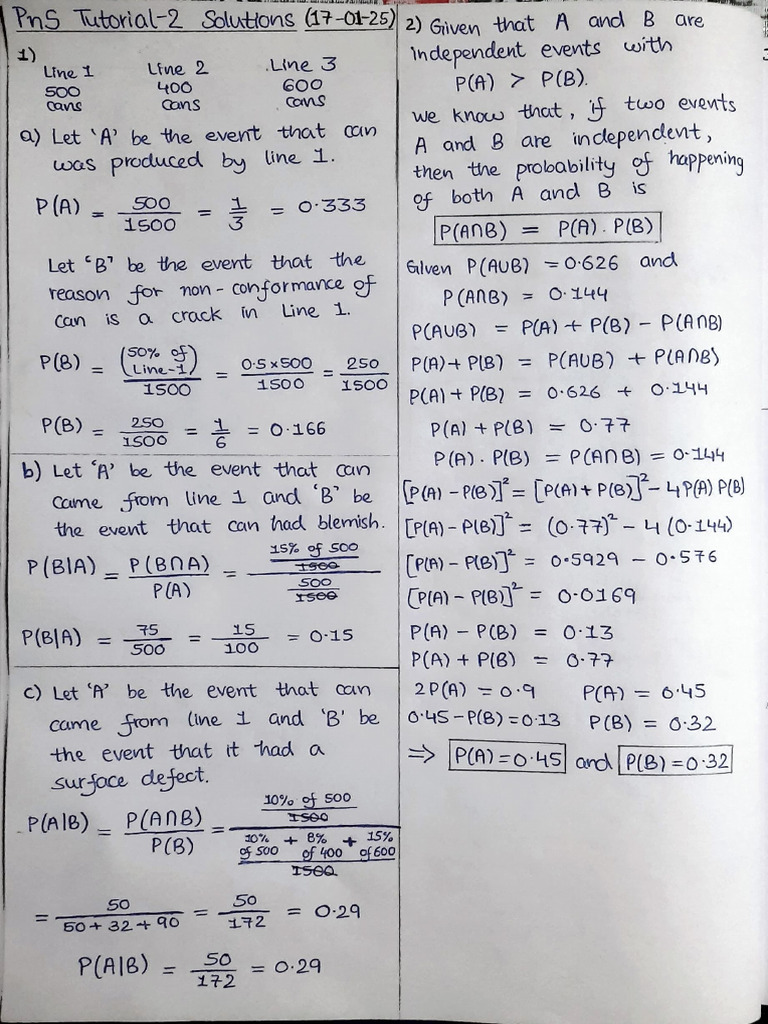 PnS Tutorial-2 Solutions (17-01-25)
1)
Line 1 Line 2 Line 3
500 400 600
cans cans cans
a) Let 'A' be the event that can
was produced by line 1.
P(A) = 500/1500 = 1/3 = 0.333
Let 'B' be the event that the
reason for non-conformance of
can is a crack in Line 1.
P(B) = (50% of Line-1)/1500 = 0.5×500/1500 = 250/1500
P(B) = 250/1500 = 1/6 = 0.166
b) Let 'A' be the event that can
came from line 1 and 'B' be
the event that can had blemish.
P(B|A) = P(B∩A)/P(A) = (15% of 500/1500)/(500/1500)
P(B|A) = 75/500 = 15/100 = 0.15
c) Let 'A' be the event that can
came from line 1 and 'B' be
the event that it had a
surface defect.
P(A|B) = P(A∩B)/P(B) = (10% of 500/1500)/((10% of 500 + 8% of 400 + 15% of 600)/1500)
= 50/(50+32+90) = 50/172 = 0.29
P(A|B) = 50/172 = 0.29
2) Given that A and B are
independent events with
P(A) > P(B).
we know that, if two events
A and B are independent,
then the probability of happening
of both A and B is
P(A∩B) = P(A). P(B)
Given P(A∪B) = 0.626 and
P(A∩B) = 0.144
P(A∪B) = P(A) + P(B) - P(A∩B)
P(A)+ P(B) = P(A∪B) + P(A∩B)
P(A) + P(B) = 0.626 + 0.144
P(A) + P(B) = 0.77
P(A). P(B) = P(A∩B) = 0.144
[P(A) - P(B)]² = [P(A) + P(B)]² - 4P(A) P(B)
[P(A) - P(B)]² = (0.77)² - 4 (0.144)
[P(A) - P(B)]² = 0.5929 - 0.576
[P(A) - P(B)]² = 0.0169
P(A) - P(B) = 0.13
P(A) + P(B) = 0.77
2P(A) = 0.9 P(A) = 0.45
0.45-P(B) = 0.13 P(B) = 0.32
⇒ P(A) = 0.45 and P(B) = 0.32